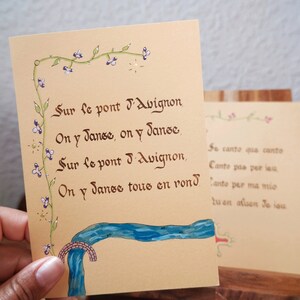 Sur le pont d'Avignon
On y danse, on y danse,
Sur le pont d'Avignon
On y danse tous en rond
Se canto que canto
Canto pas per ieu
Canto per ma mio